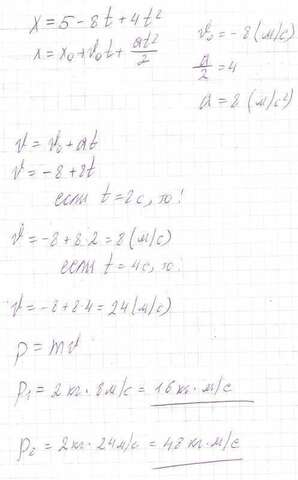 x = 5 - 8t + 4t²
x = x₀ + v₀t + at²/2
v₀ = -8 (м/с)
a/2 = 4
a = 8 (м/с²)
v = v₀ + at
v = -8 + 8t
если t = 2с, то:
v = -8 + 8·2 = 8 (м/с)
если t = 4с, то:
v = -8 + 8·4 = 24 (м/с)
p = mv
p₁ = 2 кг · 8 м/с = 16 кг · м/с
p₂ = 2 кг · 24 м/с = 48 кг · м/с